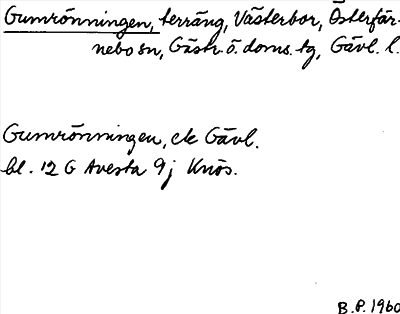 Gumrönningen, terräng, Västerbor, Österfär-
nebo sn, Gästr. ö. doms. tg, Gävl. l.
Gumrönningen, ek Gävl.
bl. 12 G Avesta 9j Knös.
B.P. 1960